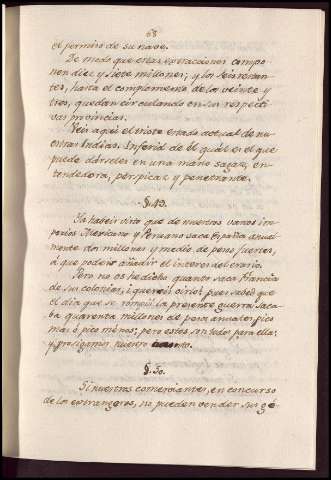 68
el permiso de su nave.
De modo que estas extracciones compo-
nen diez y siete millones; y los seis restan-
tes, hasta el complemento de los veinte y
tres, quedan circulando en sus respecti-
vas provincias.
Veis aqui el triste estado actual de nu-
estras Indias. Inferid de él qual es el que
puede dárseles en una mano sagaz, en-
tendedora, perspicaz y penetrante.
§.49.
Ya habeis visto que de nuestros vanos im-
perios Mexicano y Peruano saca España anual-
mente dos millones y medio de pesos fuertes,
á que podeis añadir el interes del erario.
Pero no os he dicho quanto saca Francia
de sus colonias; ¿quereis oirlo? pues sabed que
el dia que se rompió la presente guerra saca-
ba quarenta millones de pesos anuales pico
mas ó pico ménos; pero estos son todos para ella;
y prosigamos nuestro
§.50.
Si nuestros comerciantes, en concurso
de los extrangeros, no pueden vender sus gé-